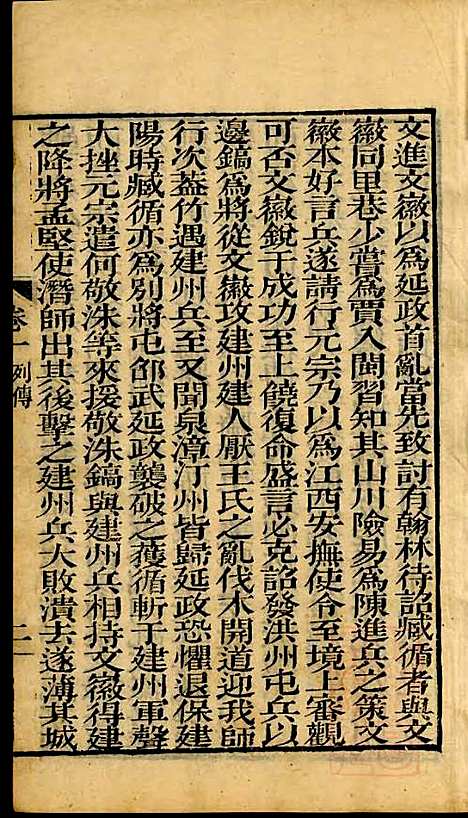 文進文徽以為延政首亂當先致討有翰林待詔臧循者與文
徽同里巷少嘗為賈入閩習知其山川險易為陳進兵之策文
徽本好言兵遂請行元宗乃以為江西安撫使令至境上審觀
可否文徽銳于成功至上饒復命盛言必克詔發洪州屯兵以
邊鎬為將從文徽攻建州建人厭王氏之亂伐木開道迎我師
行次葢竹遇建州兵至又聞泉漳汀州皆歸延政恐懼退保建
陽時臧循亦為別將屯邵武延政襲破之獲循斬于建州軍聲
大挫元宗遣何敬洙等來援敬洙鎬與建州兵相持文徽得建
之降將孟堅使潛師出其後擊之建州兵大敗潰去遂薄其城
卷一 列傳 二